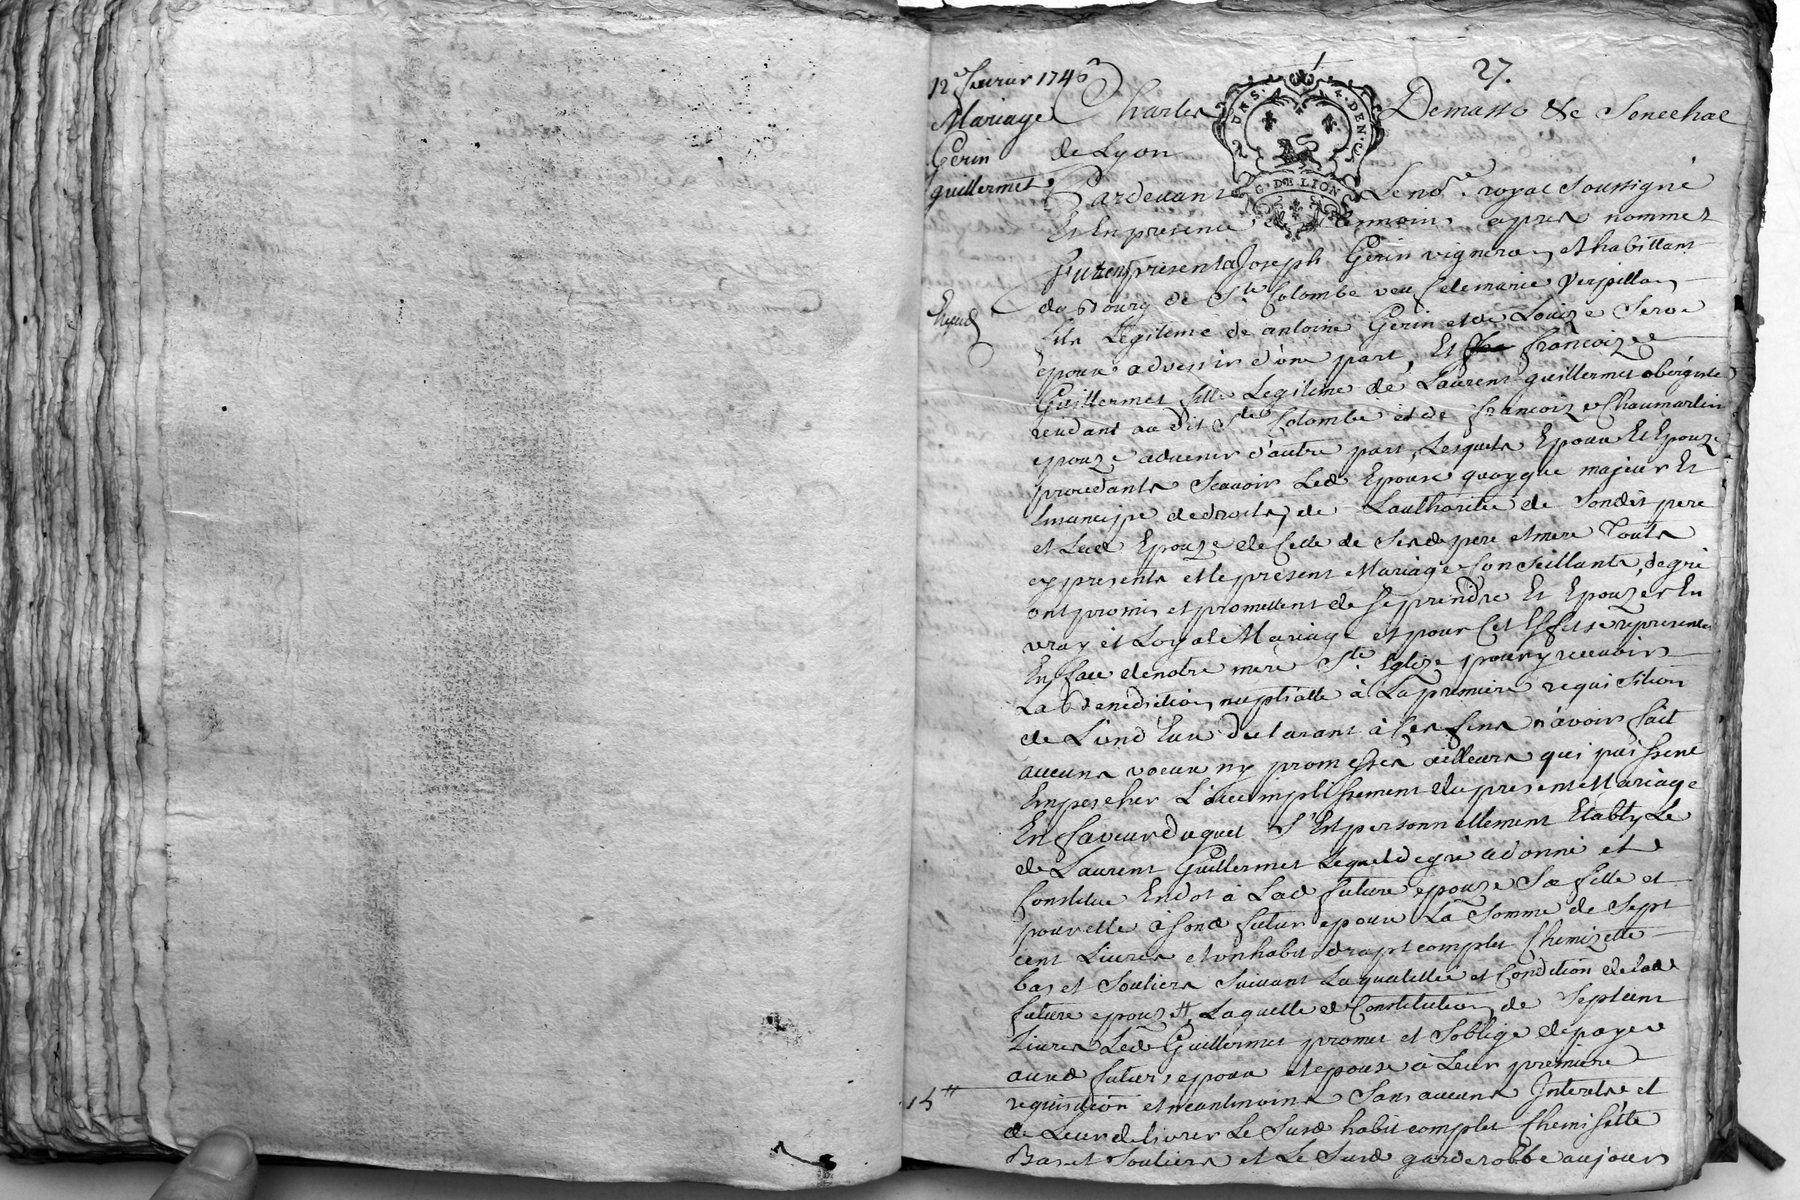 27.
12e fevrier 1746
Mariage
Gerin
guillermet
Expedié
15tt
Charles Demasso &c Senechal
de Lyon
DEUX S. 4 DEN.
G. DE LION
Pardevant Le nore royal Soussigné
Et En presence de temoins apres nommez
furent presents Joseph Gerin vigneron et habittant
du Bourg de Ste Colombe veuf de marie Verpillon
fils Legitime de antoine Gerin et de Louize Serve
epoux advenir d'une part, Et francoize
Guillermet fille Legitime de Laurent guillermet obergiste
rendant au dit Ste Colombe et de francoize Chaumartin
epouze advenir d'autre part, Lesquels Epoux Et Epouze
procedants Scavoir Led Epoux quoyque majeur Et
Emancipé de droits, de Lauthorité de Sondit pere
et Lad Epouze de Celle de Sesd pere et mere Touts
cy presents et le present Mariage Conseillants, de gré
ont promis et promettent de se prendre Et Epouzer En
vray et Loyal Mariage et pour Cet Effet se representer
En face de notre mere Ste Eglize pour y recevoir
La Benediction nuptialle à La premiere requisition
de L'un d'Eux declarant à Ces fins n'avoir fait
aucuns voeux ny promesses ailleurs qui puissent
Empescher L'accomplissement du present Mariage
En faveur duquel S'Est personnellement Etably Le
d Laurent Guillermet Lequel de gré a donné et
Constitué En dot à Lad future epouze Sa fille et
pour elle à sond futur epoux La Somme de Sept
cent Livres et un habit drapt complet Chemizette
bas et Souliers Suivant La qualitté et Condition de lad
future epouze Laquelle d Constitution de Septcent
Livres Led Guillermet promet et S'oblige de payer
auxd futurs epoux et epouse à Leur premiere
requisition et neantmoins Sans aucuns Interets et
de Leur delivrer Le Susd habit complet Chemisette
Bas et Souliers et Le Susd garderobbe aujours